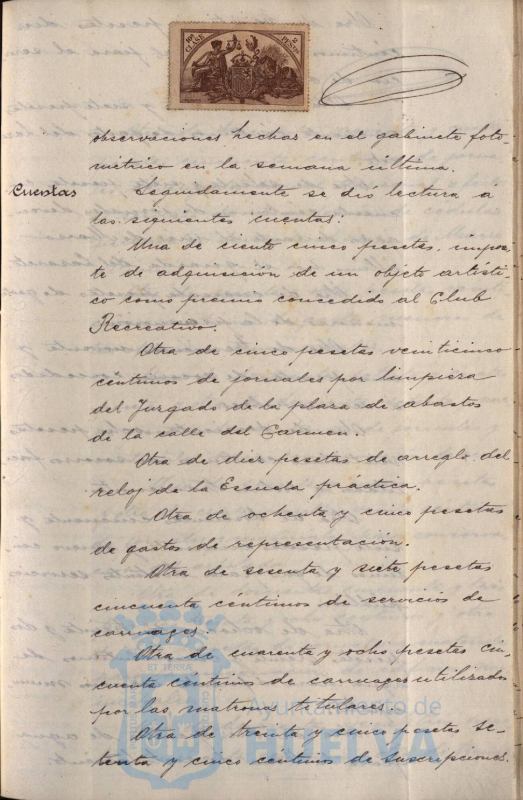 10ª CLASE
2 PESETAS
observaciones hechas en el gabinete foto-
métrico en la semana última.
Cuentas
Seguidamente se dió lectura á
las siguientes cuentas:
Una de ciento cinco pesetas, impor-
te de adquisición de un objeto artísti-
co como premio concedido al Club
Recreativo.
Otra de cinco pesetas veinticinco
céntimos de jornales por limpieza
del Juzgado de la plaza de abastos
de la calle del Carmen.
Otra de diez pesetas de arreglo del
reloj de la Escuela práctica.
Otra de ochenta y cinco pesetas
de gastos de representación.
Otra de sesenta y siete pesetas
cincuenta céntimos de servicios de
carruages.
Otra de cuarenta y ocho pesetas cin-
cuenta céntimos de carruages utilizados
por las matronas titulares.
Otra de treinta y cinco pesetas se-
tenta y cinco céntimos de suscripciones.
ET TERRÆ
Ayuntamiento de
HUELVA